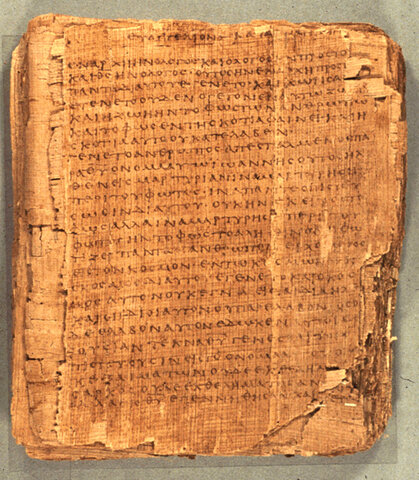 ΕΥΑΓΓΕΛΙΟΝ ΚΑ
ΕΝ ΑΡΧΗ ΗΝ Ο ΛΟΓΟΣ ΚΑΙ Ο ΛΟΓΟΣ ΗΝ ΠΡΟΣ ΤΟ
ΚΑΙ ΘΣ ΗΝ Ο ΛΟΓΟΣ · ΟΥΤΟΣ ΗΝ ΕΝ ΑΡΧΗ ΠΡΟΣ
ΠΑΝΤΑ ΔΙ ΑΥΤΟΥ ΕΓΕΝΕΤΟ ΚΑΙ ΧΩΡΙΣ ΑΥ
ΕΓΕΝΕΤΟ ΟΥΔΕΝ Ο ΓΕΓΟΝΕΝ ΕΝ ΑΥΤΩ ΖΩΗ
ΚΑΙ Η ΖΩΗ ΗΝ ΤΟ ΦΩΣ ΤΩΝ ΑΝΘΡΩΠΩΝ
ΚΑΙ ΤΟ ΦΩΣ ΕΝ ΤΗ ΣΚΟΤΙΑ ΦΑΙΝΕΙ ΚΑΙ Η
ΣΚΟΤΙΑ ΑΥΤΟ ΟΥ ΚΑΤΕΛΑΒΕΝ
ΕΓΕΝΕΤΟ ΑΝΘΡΩΠΟΣ ΑΠΕΣΤΑΛΜΕΝΟΣ ΠΑ
ΡΑ ΘΥ ΟΝΟΜΑ ΑΥΤΩ ΙΩΑΝΝΗΣ ΟΥΤΟΣ ΗΛ
ΘΕΝ ΕΙΣ ΜΑΡΤΥΡΙΑΝ ΙΝΑ ΜΑΡΤΥΡΗΣΗ
ΠΕΡΙ ΤΟΥ ΦΩΤΟΣ ΙΝΑ ΠΑΝΤΕΣ ΠΙΣΤΕΥ
ΣΩΣΙΝ ΔΙ ΑΥΤΟΥ ΟΥΚ ΗΝ ΕΚΕΙΝΟΣ ΤΟ
ΦΩΣ ΑΛΛΑ ΙΝΑ ΜΑΡΤΥΡΗΣΗ ΠΕΡΙ ΤΟΥ
ΦΩΤΟΣ ΗΝ ΤΟ ΦΩΣ ΤΟ ΑΛΗΘΙΝΟΝ Ο ΦΩ
ΤΙΖΕΙ ΠΑΝΤΑ ΑΝΘΡΩΠΟΝ ΕΡΧΟΜΕΝΟΝ
ΕΙΣ ΤΟΝ ΚΟΣΜΟΝ ΕΝ ΤΩ ΚΟΣΜΩ
ΚΟΣΜΟΣ ΔΙ ΑΥΤΟΥ ΕΓΕΝΕΤΟ ΚΑΙ Ο ΚΟΣ
ΜΟΣ ΑΥΤΟΝ ΟΥΚ ΕΓΝΩ ΕΙΣ ΤΑ ΙΔΙΑ ΗΛ
ΚΑΙ ΟΙ ΙΔΙΟΙ ΑΥΤΟΝ ΟΥ ΠΑΡΕΛΑΒΟΝ
ΔΕ ΕΛΑΒΟΝ ΑΥΤΟΝ ΕΔΩΚΕΝ ΑΥΤΟΙΣ
ΟΥΣΙΑΝ ΤΕΚΝΑ ΘΥ ΓΕΝΕΣΘΑΙ
ΠΙΣΤΕΥΟΥΣΙΝ ΕΙΣ ΤΟ ΟΝΟΜΑ
ΑΙΜΑΤΩΝ ΟΥΔΕ ΕΚ ΘΕΛΗΜΑ
ΣΑΡΚΟΣ ΟΥΔΕ ΕΚ ΘΕΛΗΜΑΤΟΣ ΑΝ
ΘΥ ΕΓΕΝΝΗΘΗΣΑΝ ΚΑΙ